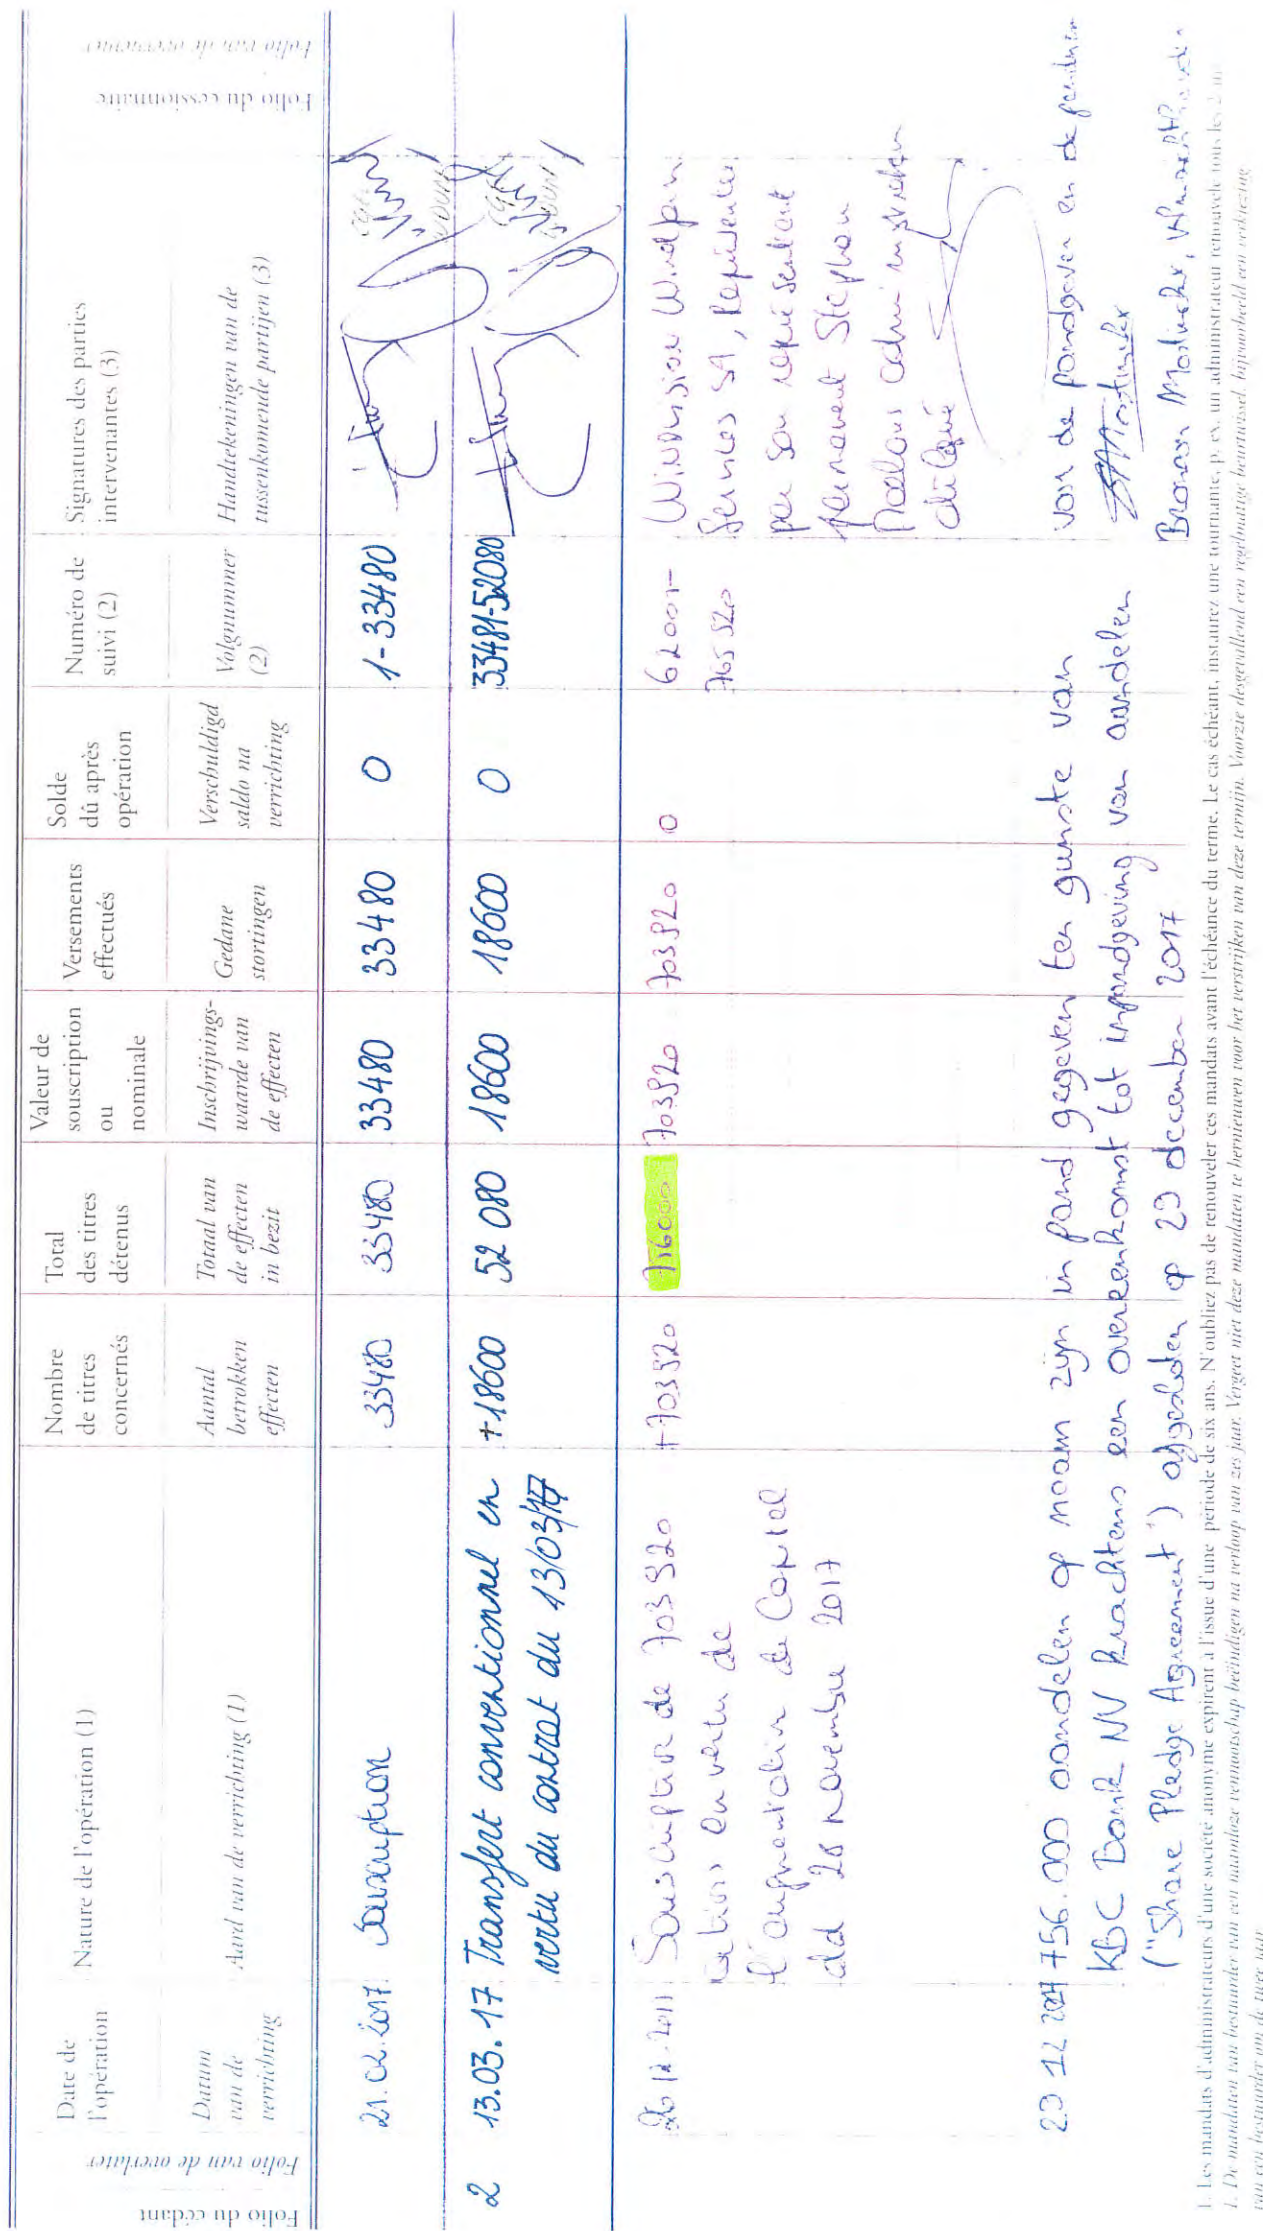 Folio du cédant
Folio van de overlater
Date de l'opération
Datum van de verrichting
Nature de l'opération (1)
Aard van de verrichting (1)
Nombre de titres concernés
Aantal betrokken effecten
Total des titres détenus
Totaal van de effecten in bezit
Valeur de souscription ou nominale
Inschrijvings-waarde van de effecten
Versements effectués
Gedane stortingen
Solde dû après opération
Verschuldigd saldo na verrichting
Numéro de suivi (2)
Volgnummer (2)
Signatures des parties intervenantes (3)
Handtekeningen van de tussenkomende partijen (3)
Folio du cessionnaire
Folio van de overnemer
21.02.2017 Souscription 33480 33480 33480 33480 0 1-33480
2 13.03.17 Transfert conventionnel en +18600 52 080 18600 18600 0 33481-52080
vertu du contrat du 13/03/17
Souscription de 703920 +703920 756000 703920 703920 0 62001-
en vertu de
l'augmentation de Capital
dd 28 novembre 2017
Services SA, représentée
par son représentant
permanent Stephan
délégué
756.000 aandelen op naam zijn in pand gegeven ten gunste van
KBC Bank NV krachtens een overeenkomst tot inpandgeving van aandelen
("Share Pledge Agreement") afgesloten op 29 december 2017
van de pandgever en de
1. Les mandats d'administrateurs d'une société anonyme expirent à l'issue d'une période de six ans. N'oubliez pas de renouveler ces mandats avant l'échéance du terme. Le cas échéant, instaurez une tournante, p. ex. un administrateur renouvelé tous les 2 ans
1. De mandaten van bestuurder van een naamloze vennootschap beëindigen na verloop van zes jaar. Vergeet niet deze mandaten te hernieuwen voor het verstrijken van deze termijn. Voorzie desgevallend een regelmatige beurtwissel, bijvoorbeeld een verkiezing
van een bestuurder om de twee jaar